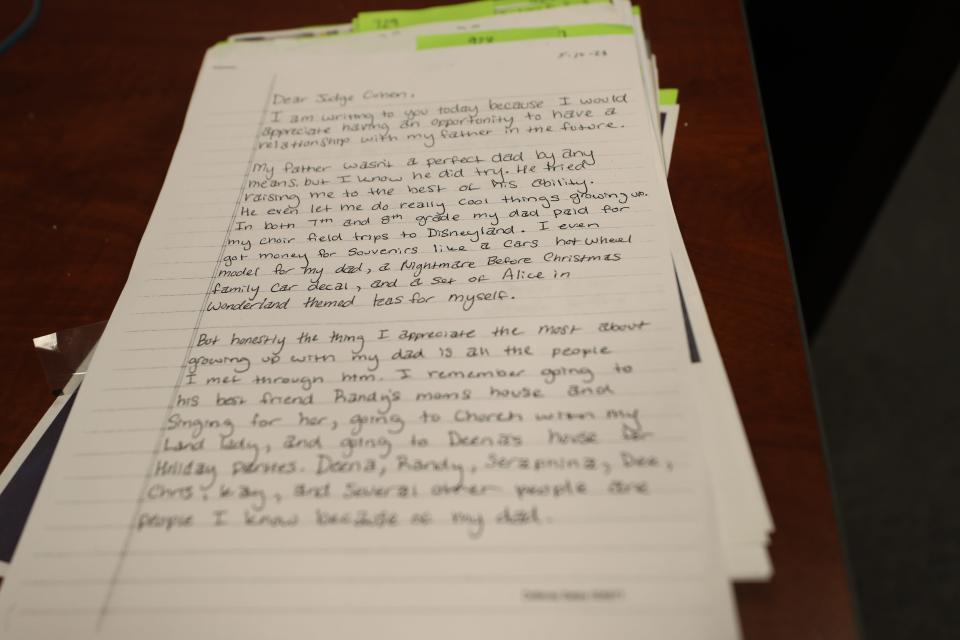 729
904
5-10-23
Dear Judge Cohen,
I am writing to you today because I would
appreciate having an opportunity to have a
relationship with my father in the future.
My father wasn't a perfect dad by any
means, but I know he did try. He tried
raising me to the best of his ability.
He even let me do really cool things growing up.
In both 7th and 8th grade my dad paid for
my choir field trips to Disneyland. I even
got money for souvenirs like a Cars hot wheel
model for my dad, a Nightmare Before Christmas
family car decal, and a set of Alice in
Wonderland themed teas for myself.
But honestly the thing I appreciate the most about
growing up with my dad is all the people
I met through him. I remember going to
his best friend Randy's moms house and
singing for her, going to Church with my
Land lady, and going to Deena's house for
Holiday parties. Deena, Randy, Seraphina, Dee,
Chris, and several other people are
people I know because of my dad.